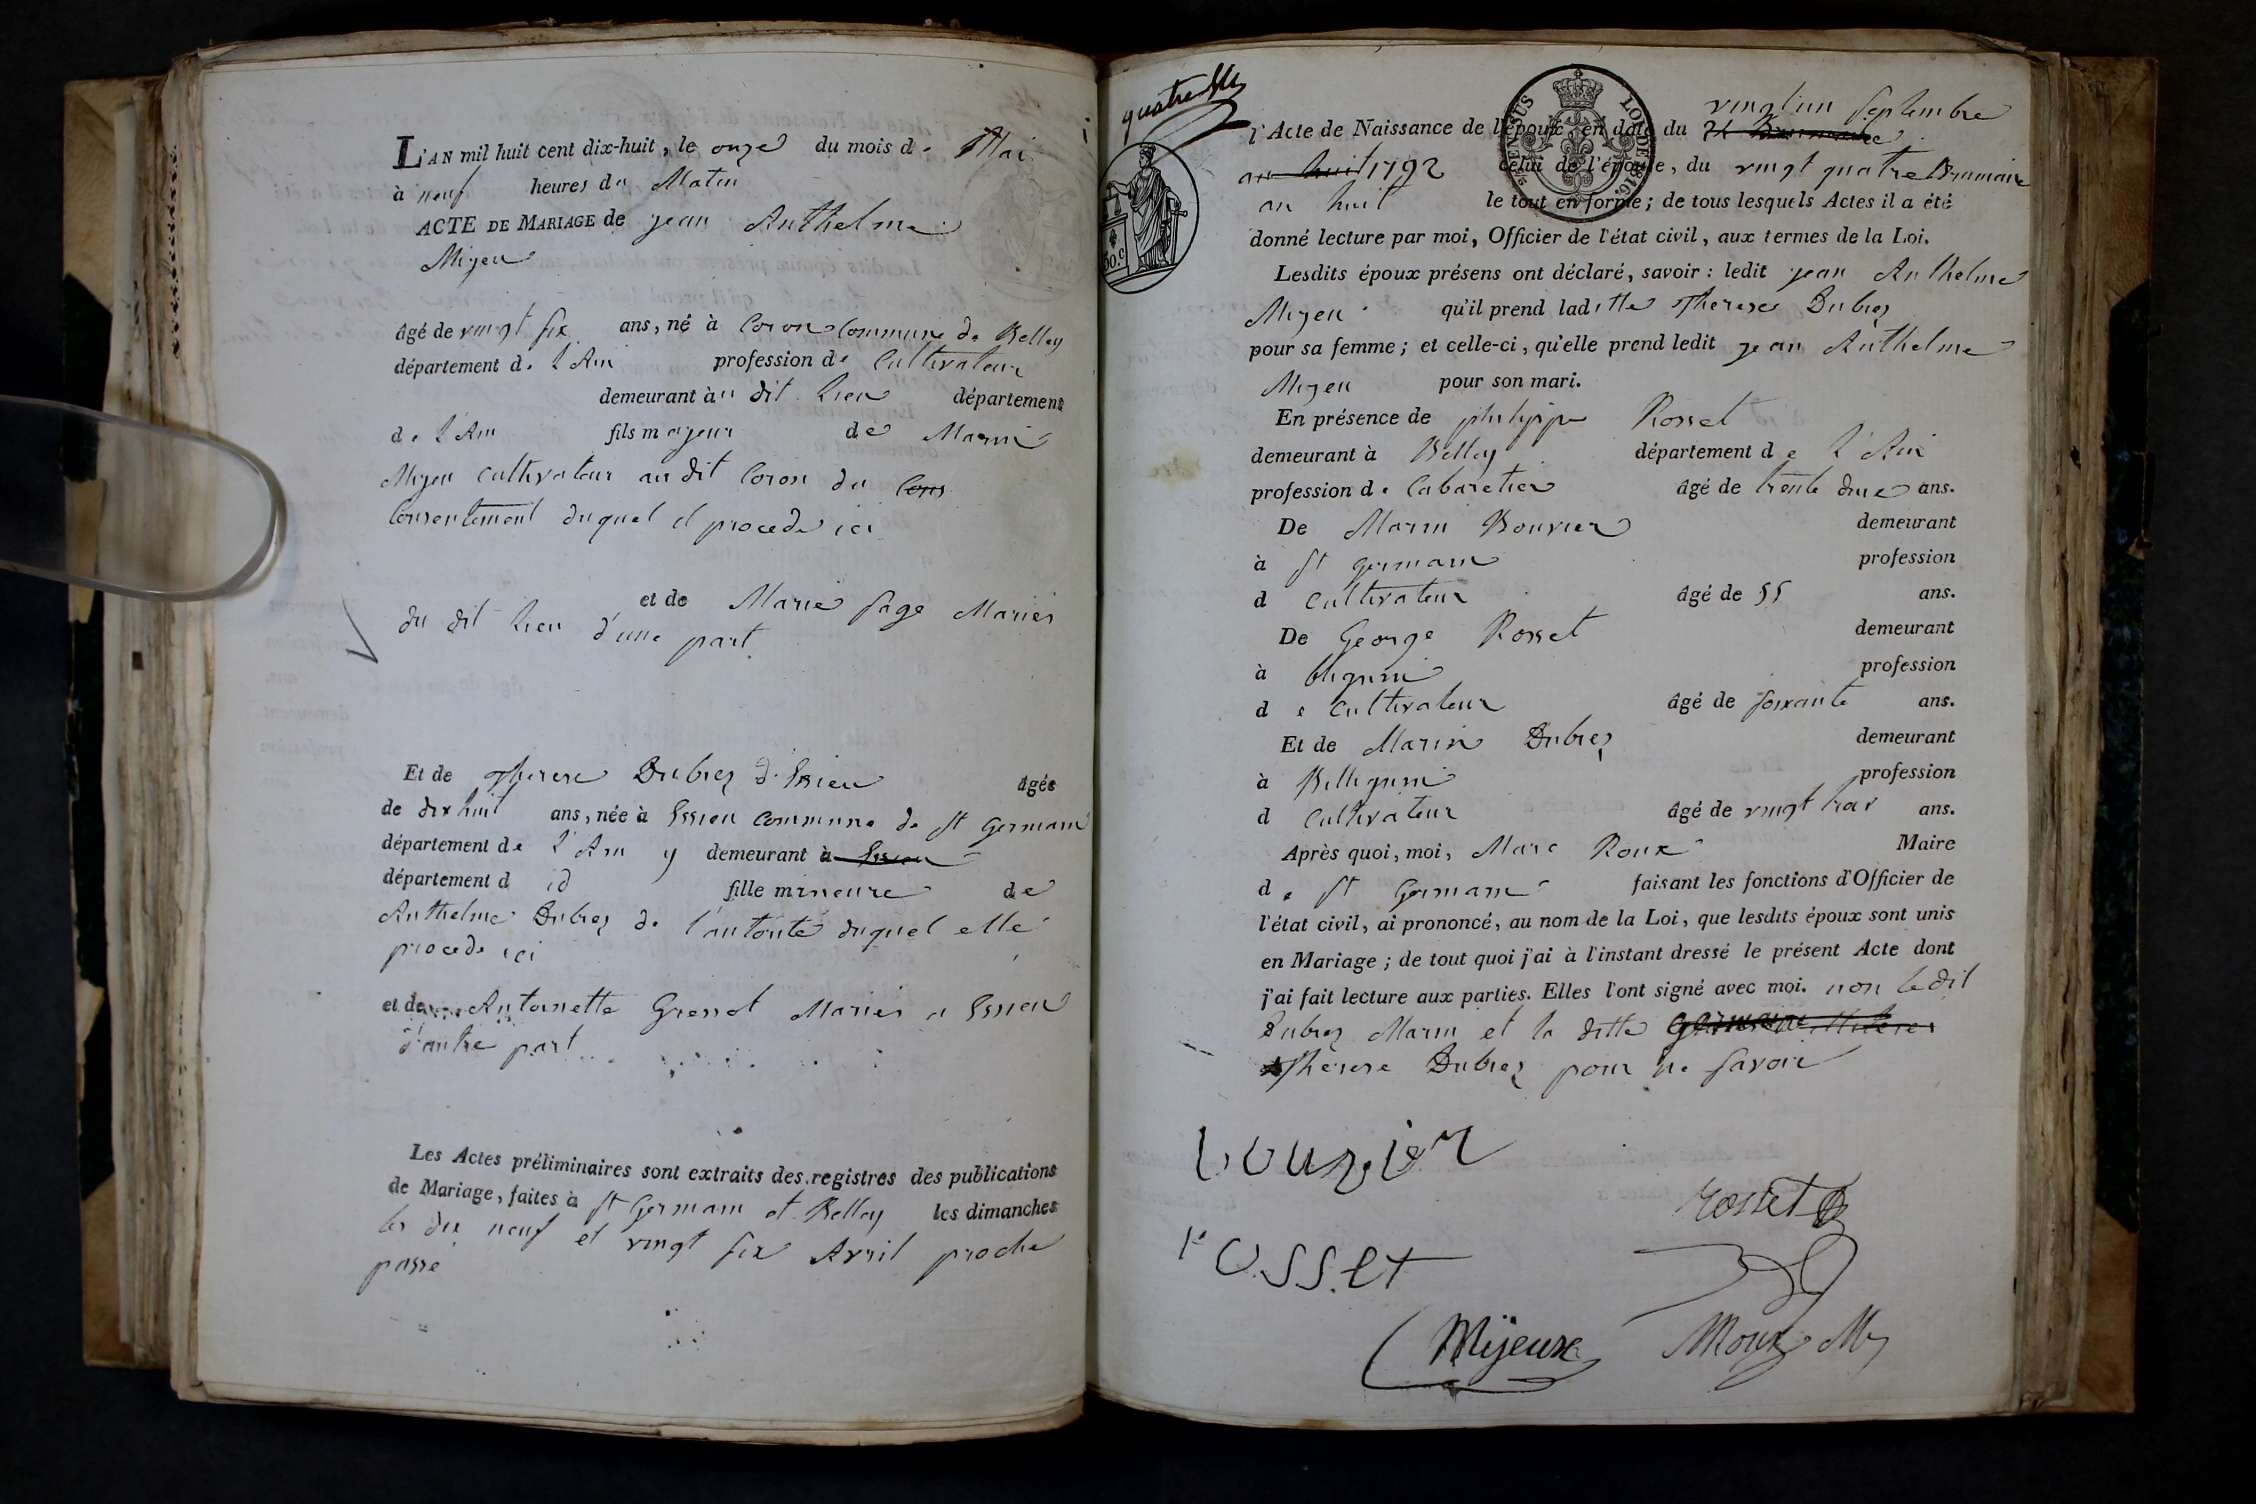 L'AN mil huit cent dix-huit, le onze du mois de Mai
à neuf heures du Matin
ACTE DE MARIAGE de jean Anthelme
Mijeu
âgé de vingt six ans, né à Coron Commune de Belley
département de l'Ain profession de Cultivateur
demeurant au dit lieu département
de l'Ain fils majeur de Marin
Mijeu cultivateur au dit Coron du Cons
Consentement duquel il procede ici
et de Marie Sage Mariés
du dit lieu d'une part
Et de Therese Dubrez d'Essieu âgée
de dix huit ans, née à Essieu Commune de St Germain
département de l'Ain y demeurant à Essieu
département d id fille mineure de
Anthelme Dubrez de l'autorité duquel elle
procede ici
et de Antoinette Mariés a Essieu
d'autre part
Les Actes préliminaires sont extraits des registres des publications
de Mariage, faites à St Germain et Belley les dimanches
les dix neuf et vingt six Avril proche
passé
quatre
vingt un Septembre
l'Acte de Naissance de l'époux en date du
an huit 1792 celui de l'épouse, du vingt quatre Brumaire
an huit le tout en forme; de tous lesquels Actes il a été
donné lecture par moi, Officier de l'état civil, aux termes de la Loi.
Lesdits époux présens ont déclaré, savoir: ledit jean Anthelme
Mijeu qu'il prend laditte Therese Dubrez
pour sa femme; et celle-ci, qu'elle prend ledit jean Anthelme
Mijeu pour son mari.
En présence de philippe Rosset
demeurant à Belley département de l'Ain
profession de Cabaretier âgé de trente ans.
De Marin Bouvier demeurant
à St germain profession
d Cultivateur âgé de 55 ans.
De George Rosset demeurant
à profession
de Cultivateur âgé de soixante ans.
Et de Marin Dubrez demeurant
à profession
d Cultivateur âgé de vingt ans.
Après quoi, moi, Marc Roux Maire
de St Germain faisant les fonctions d'Officier de
l'état civil, ai prononcé, au nom de la Loi, que lesdits époux sont unis
en Mariage; de tout quoi j'ai à l'instant dressé le présent Acte dont
j'ai fait lecture aux parties. Elles l'ont signé avec moi. non le dit
Dubrez Marin et la ditte
Therese Dubrez pour ne savoir
bouvier
Rosset
rosset
Mijeux Roux
LOI DE 1816.
50.c